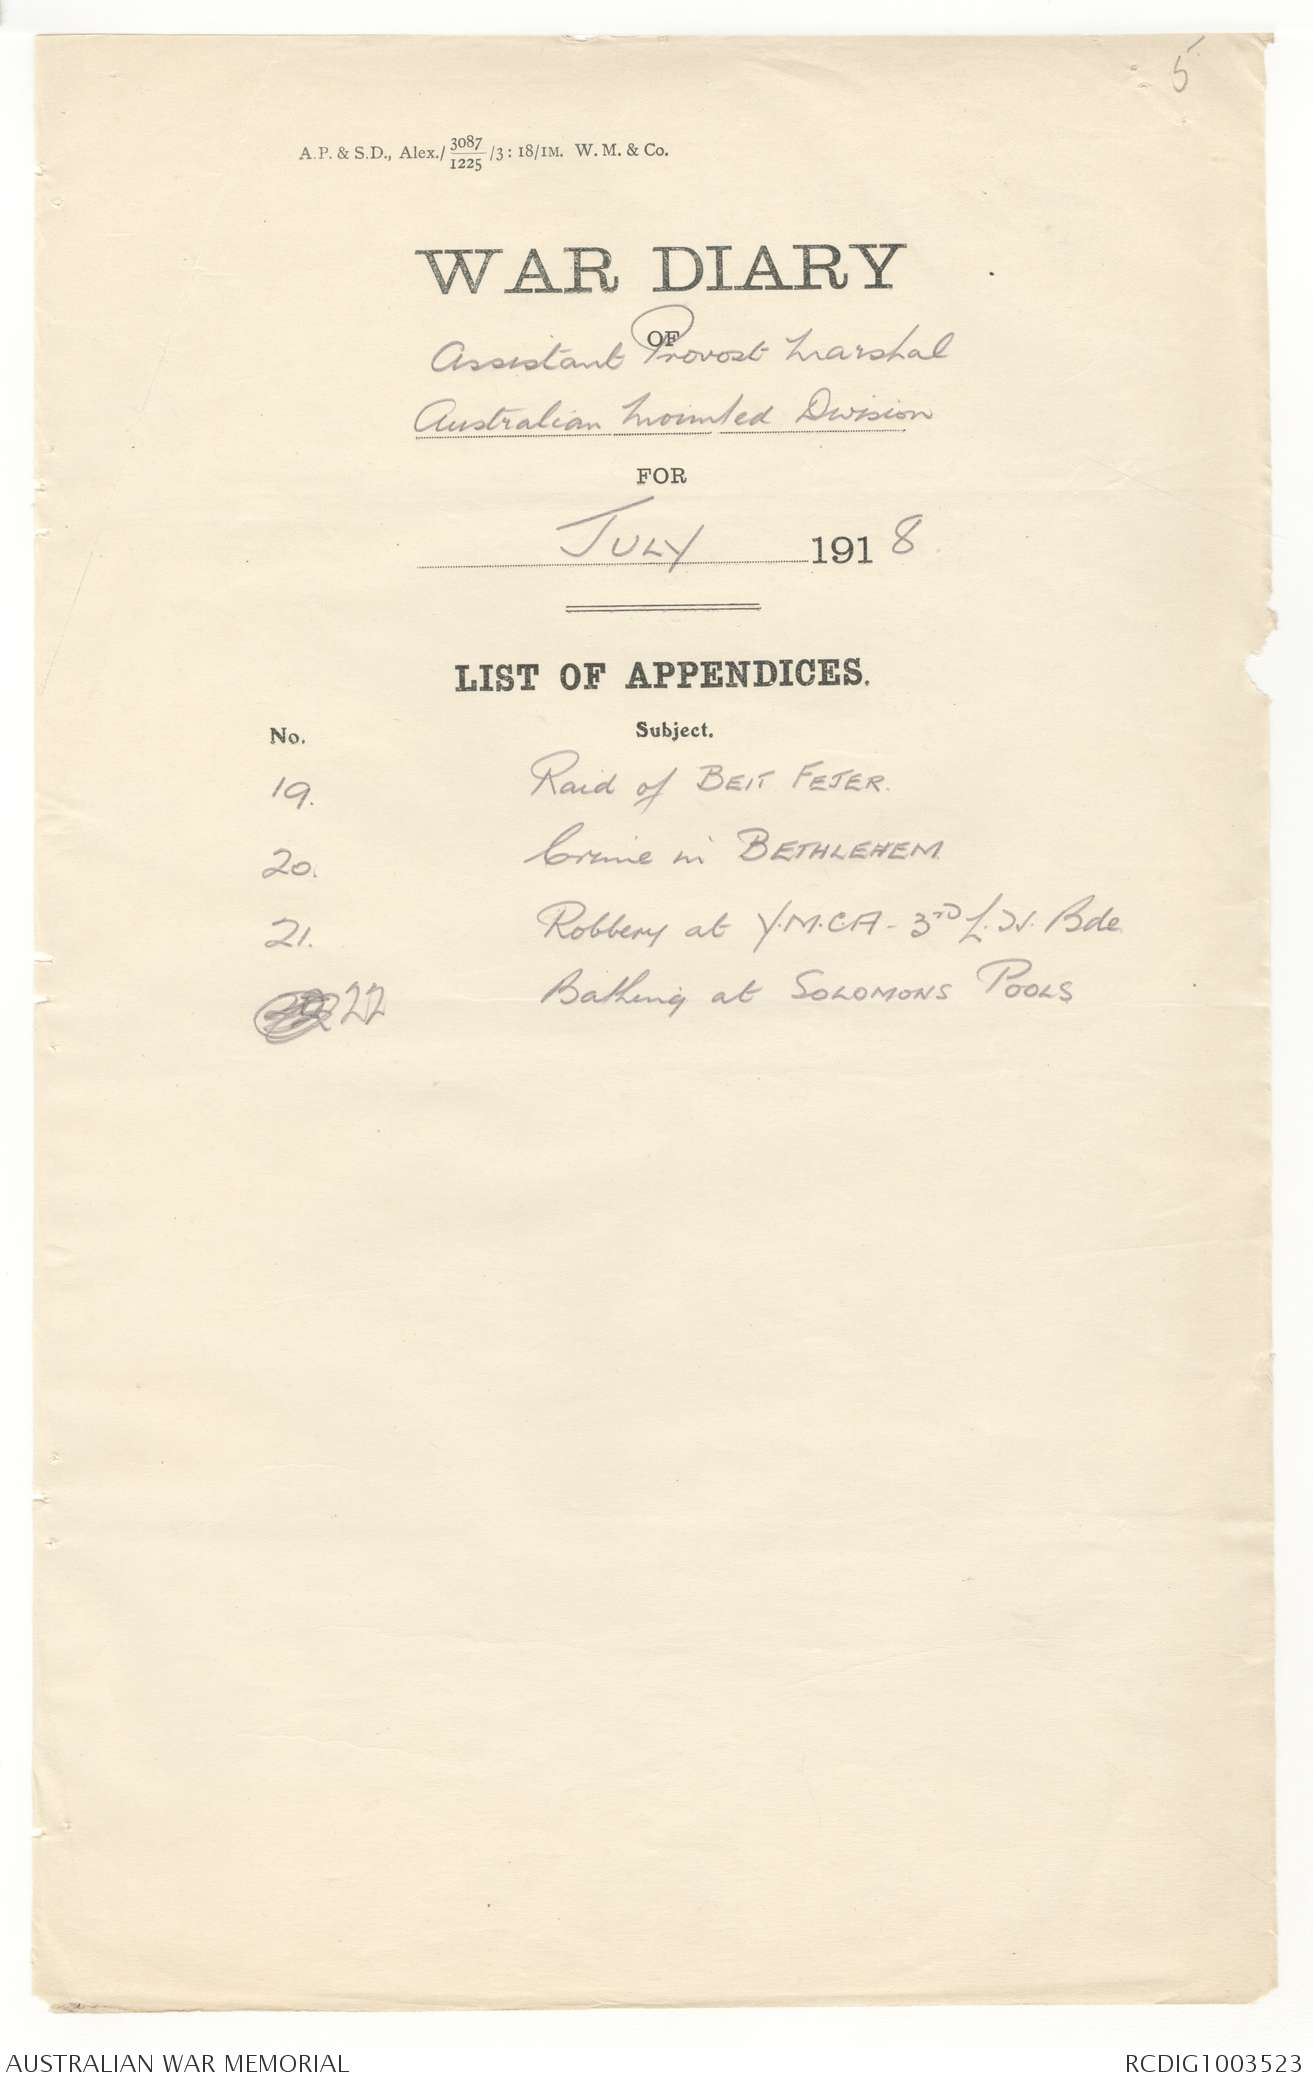 5
A.P. & S.D., Alex./3087/1225/3:18/1M. W. M. & Co.
WAR DIARY
OF
Assistant Provost Marshal
Australian Mounted Division
FOR
JULY 1918
LIST OF APPENDICES.
No. Subject.
19. Raid of BEIT FEJER.
20. Crime in BETHLEHEM.
21. Robbery at Y.M.C.A - 3RD L.H. Bde.
22 Bathing at SOLOMONS POOLS
AUSTRALIAN WAR MEMORIAL RCDIG1003523